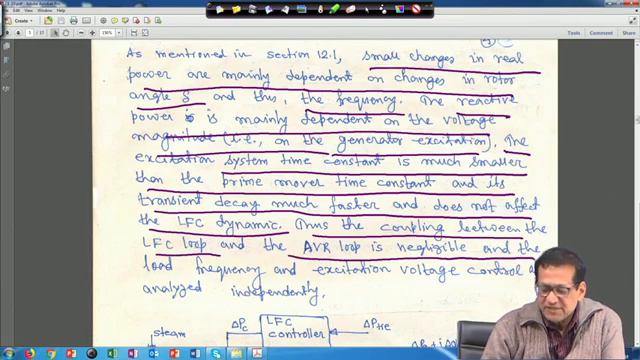 As mentioned in section 12.1, small changes in real
power are mainly dependent on changes in rotor
angle δ and thus, the frequency. The reactive
power is is mainly dependent on the voltage
magnitude (i.e., on the generator excitation). The
excitation system time constant is much smaller
than the prime mover time constant and its
transient decay much faster and does not affect
the LFC dynamic. Thus the coupling between the
LFC loop and the AVR loop is negligible and the
load frequency and excitation voltage control
analyzed independently.
steam
ΔPc
LFC
controller
ΔPtie